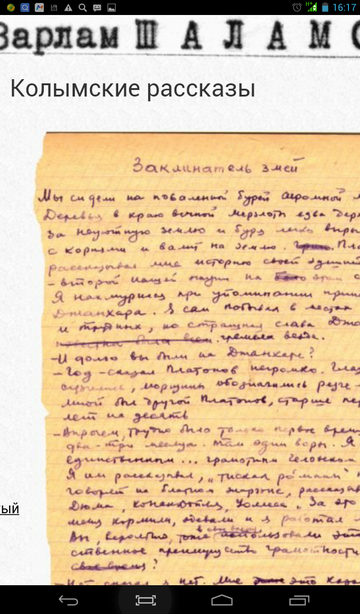 16:17
Варлам ШАЛАМО
Колымские рассказы
Заклинатель змей
Мы сидели на поваленной бурей огромной
Деревья в краю вечной мерзлоты едва держ
за неуютную землю и буря легко выры
с корнями и валит на землю. Пла
рассказывал мне историю своей здешней
- второй нашей жизни на этом
Я нахмурился при упоминании приис
Джанхара. Я сам побывал в местах
и трудных, но страшная слава Джан
гремела везде.
- И долго вы были на Джанхаре?
- Год - сказал Платонов негромко. Глаз
морщины обозначились резче -
мной был другой Платонов, старше пер
лет на десять
- Впрочем, трудно было только первое врем
два-три месяца. Там одни воры. Я
единственным ... грамотным человеком
Я им рассказывал, "тискал романы"
говорят на блатном жаргоне, рассказ
Дюма, Конан-Дойля, Уоллеса. За это
меня кормили, одевали и я работал
Вы, вероятно, тоже в свое время использовали это
ственное преимущество грамотности
свое время?
- Нет, сказал я, нет. Мне это каза
ый